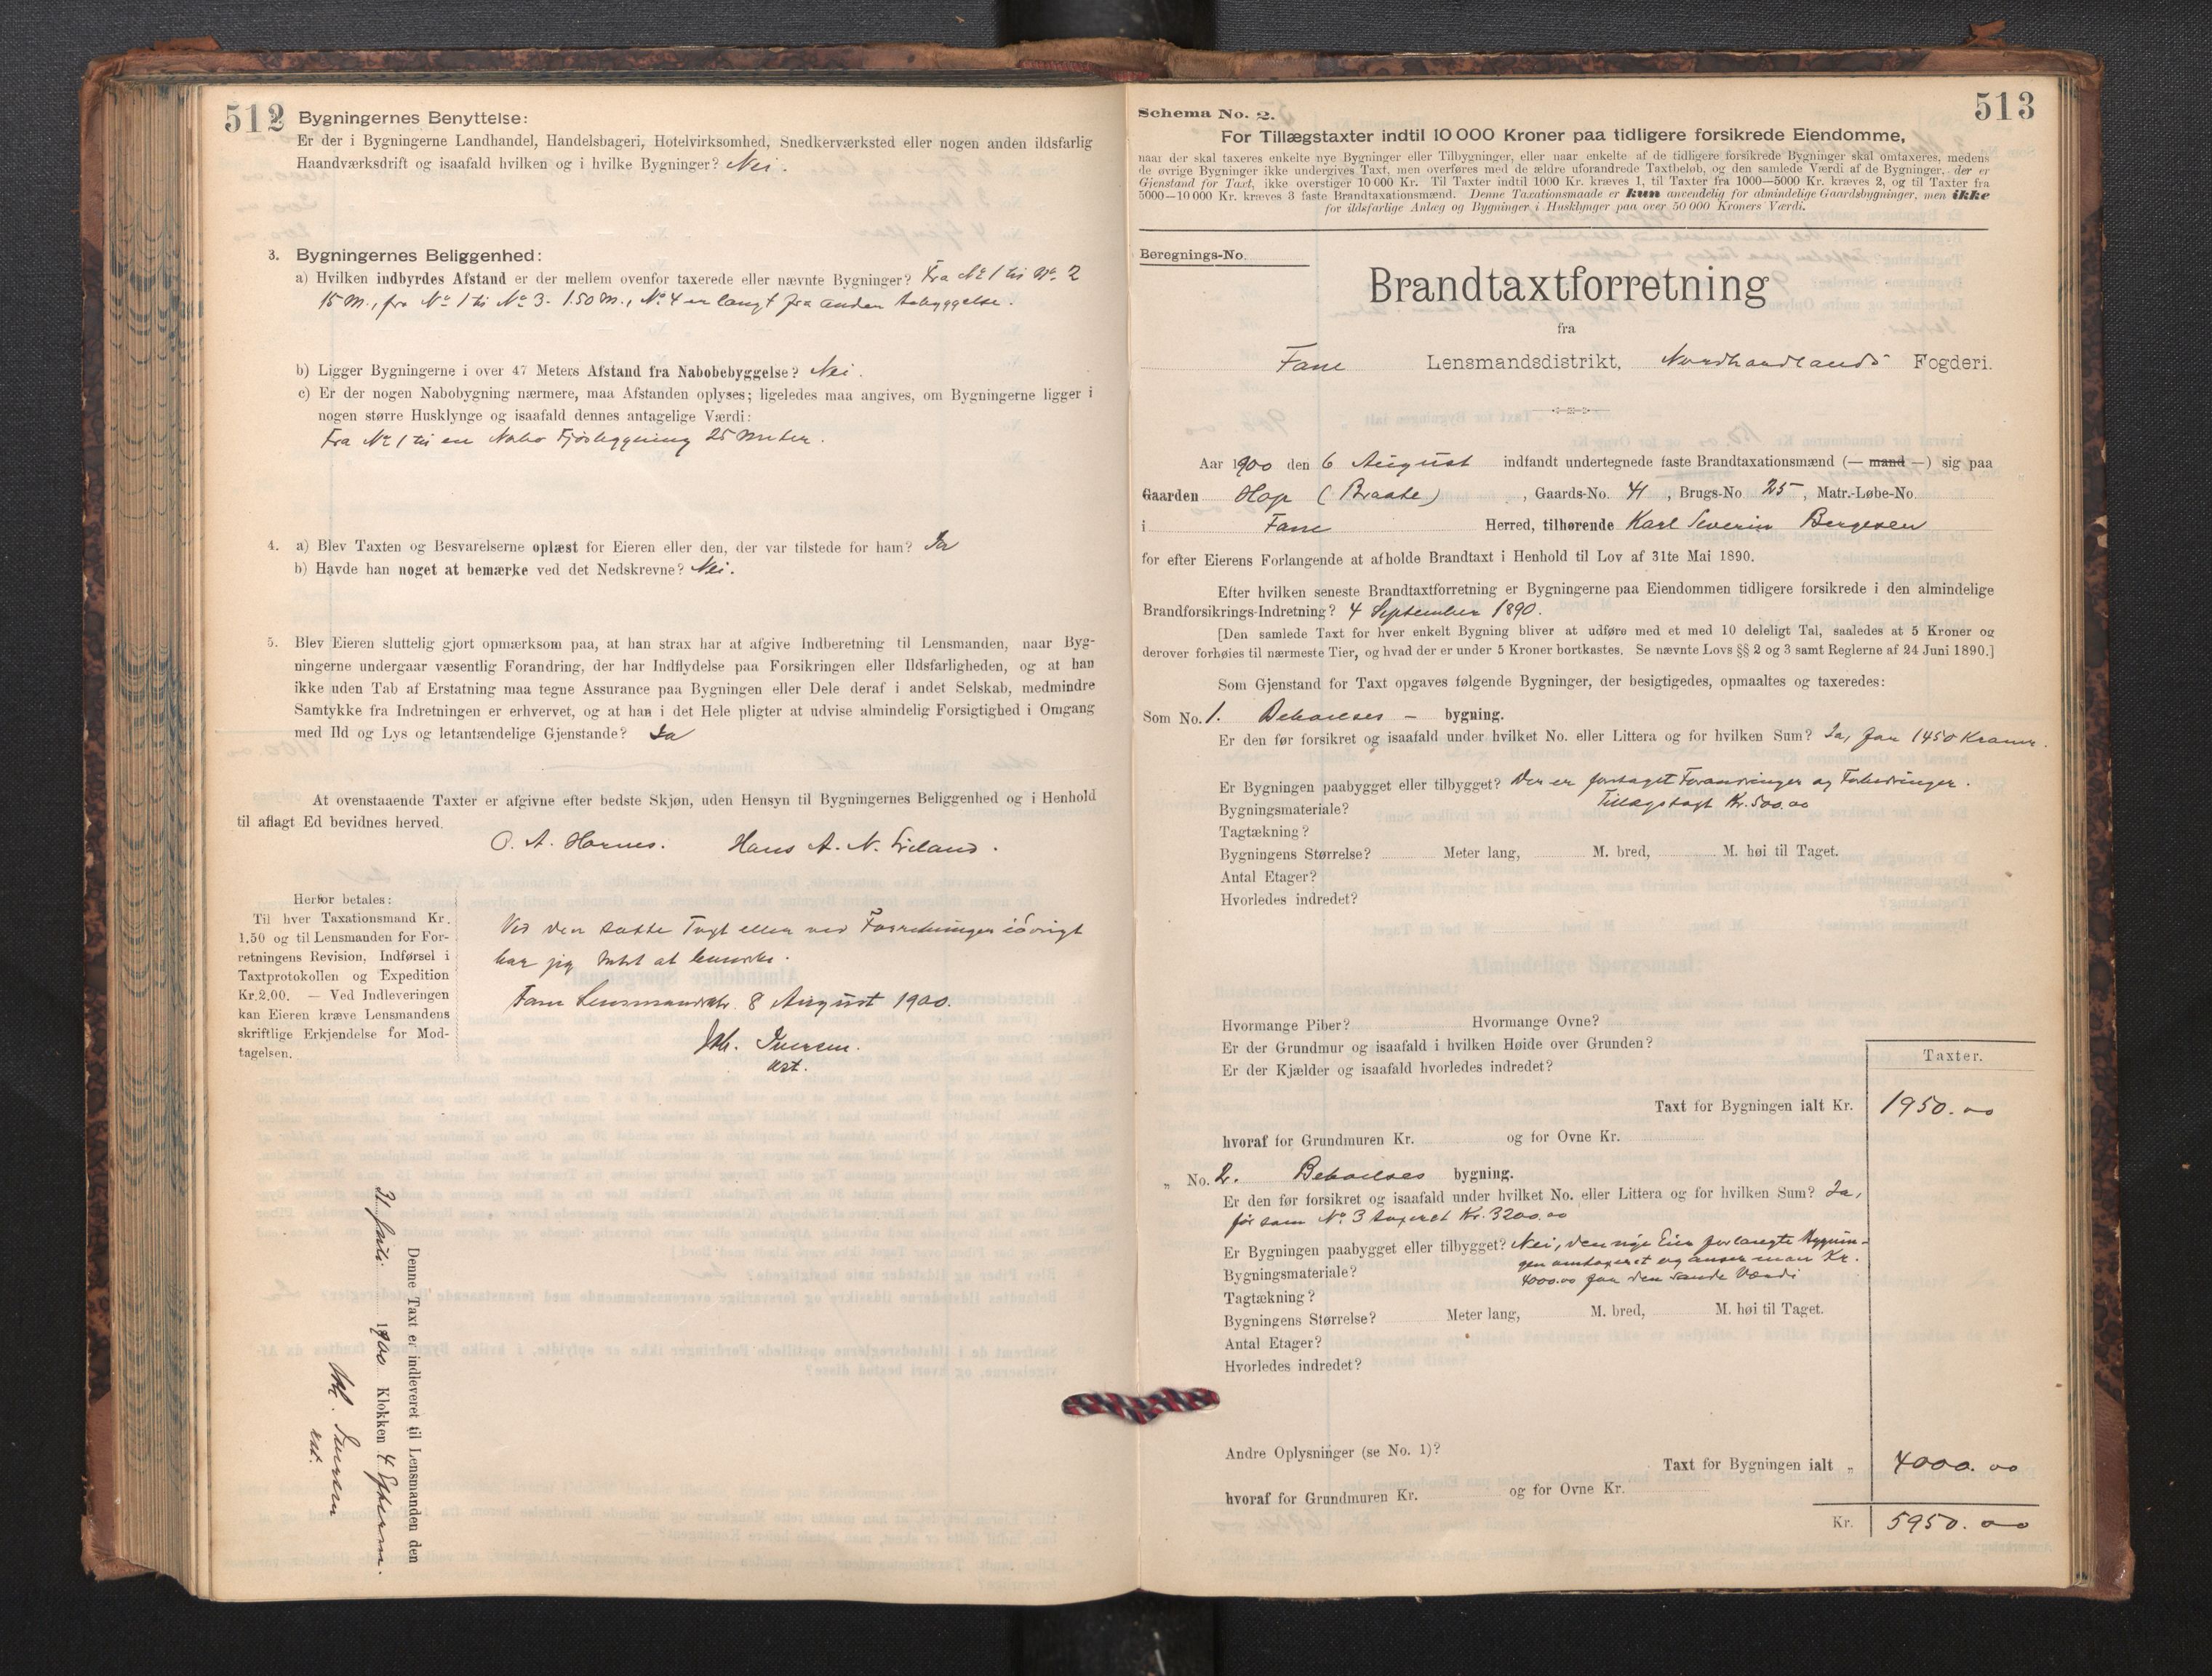 512
Bygningernes Benyttelse:
Er der i Bygningerne Landhandel, Handelsbageri, Hotelvirksomhed, Snedkerværksted eller nogen anden ildsfarlig
Haandværksdrift og isaafald hvilken og i hvilke Bygninger? Nei.
3. Bygningernes Beliggenhed:
a) Hvilken indbyrdes Afstand er der mellem ovenfor taxerede eller nævnte Bygninger? Fra No 1 til No. 2
15 M., fra No 1 til No 3. 150 M., No 4 er langt fra anden bebyggelse.
b) Ligger Bygningerne i over 47 Meters Afstand fra Nabobebyggelse? Nei.
c) Er der nogen Nabobygning nærmere, maa Afstanden oplyses; ligeledes maa angives, om Bygningerne ligger i
nogen større Husklynge og isaafald dennes antagelige Værdi:
Fra No 1 til en Nabo Fjøsbygning 25 Meter.
4. a) Blev Taxten og Besvarelserne oplæst for Eieren eller den, der var tilstede for ham? Ja
b) Havde han noget at bemærke ved det Nedskrevne? Nei.
5. Blev Eieren sluttelig gjort opmærksom paa, at han strax har at afgive Indberetning til Lensmanden, naar Byg-
ningerne undergaar væsentlig Forandring, der har Indflydelse paa Forsikringen eller Ildsfarligheden, og at han
ikke uden Tab af Erstatning maa tegne Assurance paa Bygningen eller Dele deraf i andet Selskab, medmindre
Samtykke fra Indretningen er erhvervet, og at han i det Hele pligter at udvise almindelig Forsigtighed i Omgang
med Ild og Lys og letantændelige Gjenstande? Ja
At ovenstaaende Taxter er afgivne efter bedste Skjøn, uden Hensyn til Bygningernes Beliggenhed og i Henhold
til aflagt Ed bevidnes herved.
O. A. Hornes. Hans A. N.
Herfor betales:
Til hver Taxationsmand Kr.
1.50 og til Lensmanden for For-
retningens Revision, Indførsel i
Taxtprotokollen og Expedition
Kr. 2.00. — Ved Indleveringen
kan Eieren kræve Lensmandens
skriftlige Erkjendelse for Mod-
tagelsen.
Ved den satte Taxt eller ved Forretningen iøvrigt
har jeg Intet at bemærke.
Fane Lensmandsktr. 8 August 1900.
Joh. Iversen.
cst.
Denne Taxt er indleveret til Lensmanden den
1900 Klokken 4 Efterm.
Joh. Iversen
cst.
513
Schema No. 2.
For Tillægstaxter indtil 10 000 Kroner paa tidligere forsikrede Eiendomme,
naar der skal taxeres enkelte nye Bygninger eller Tilbygninger, eller naar enkelte af de tidligere forsikrede Bygninger skal omtaxeres, medens
de øvrige Bygninger ikke undergives Taxt, men overføres med de ældre uforandrede Taxtbeløb, og den samlede Værdi af de Bygninger, der er
Gjenstand for Taxt, ikke overstiger 10 000 Kr. Til Taxter indtil 1000 Kr. kræves 1, til Taxter fra 1000—5000 Kr. kræves 2, og til Taxter fra
5000—10 000 Kr. kræves 3 faste Brandtaxationsmænd. Denne Taxationsmaade er kun anvendelig for almindelige Gaardsbygninger, men ikke
for ildsfarlige Anlæg og Bygninger i Husklynger paa over 50 000 Kroners Værdi.
Beregnings-No.
Brandtaxtforretning
fra
Fane Lensmandsdistrikt, Nordhordlands Fogderi.
Aar 1900 den 6 August indfandt undertegnede faste Brandtaxationsmænd (— mand —) sig paa
Gaarden Hop (Braate), Gaards-No. 41, Brugs-No 25, Matr.-Løbe-No.
i Fane Herred, tilhørende Karl Severin Bergesen
for efter Eierens Forlangende at afholde Brandtaxt i Henhold til Lov af 31te Mai 1890.
Efter hvilken seneste Brandtaxtforretning er Bygningerne paa Eiendommen tidligere forsikrede i den almindelige
Brandforsikrings-Indretning? 4 September 1890.
[Den samlede Taxt for hver enkelt Bygning bliver at udføre med et med 10 deleligt Tal, saaledes at 5 Kroner og
derover forhøies til nærmeste Tier, og hvad der er under 5 Kroner bortkastes. Se nævnte Lovs §§ 2 og 3 samt Reglerne af 24 Juni 1890.]
Som Gjenstand for Taxt opgaves følgende Bygninger, der besigtigedes, opmaaltes og taxeredes:
Som No. 1. Beboelses - bygning.
Er den før forsikret og isaafald under hvilket No. eller Littera og for hvilken Sum? Ja, for 1450 Kroner.
Er Bygningen paabygget eller tilbygget? Der er foretaget Forandringer og Forbedringer.
Tillægstaxt Kr. 500.00
Bygningsmateriale?
Tagtækning?
Bygningens Størrelse? Meter lang, M. bred, M. høi til Taget.
Antal Etager?
Hvorledes indredet?
Hvormange Piber? Hvormange Ovne?
Er der Grundmur og isaafald i hvilken Høide over Grunden?
Er der Kjælder og isaafald hvorledes indredet?
Taxter.
Taxt for Bygningen ialt Kr. 1950.00
hvoraf for Grundmuren Kr. og for Ovne Kr.
„ No. 2. Beboelses bygning.
Er den før forsikret og isaafald under hvilket No. eller Littera og for hvilken Sum? Ja,
før som No. 3 taxeret Kr. 3200.00
Er Bygningen paabygget eller tilbygget? Nei, den nye Eier forlangte Bygnin-
gen omtaxeret og anser man Kr.
4000.00 for den sande Værdi
Bygningsmateriale?
Tagtækning?
Bygningens Størrelse? Meter lang, M. bred, M. høi til Taget.
Antal Etager?
Hvorledes indredet?
Andre Oplysninger (se No. 1)?
Taxt for Bygningen ialt „ 4000.00
hvoraf for Grundmuren Kr. og for Ovne Kr.
Kr. 5950.00